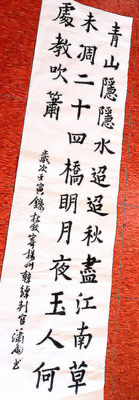 青山隱隱水迢迢秋盡江南草
未凋二十四橋明月夜玉人何
處教吹簫
歲次壬寅錄杜牧寄揚州韓綽判官 書